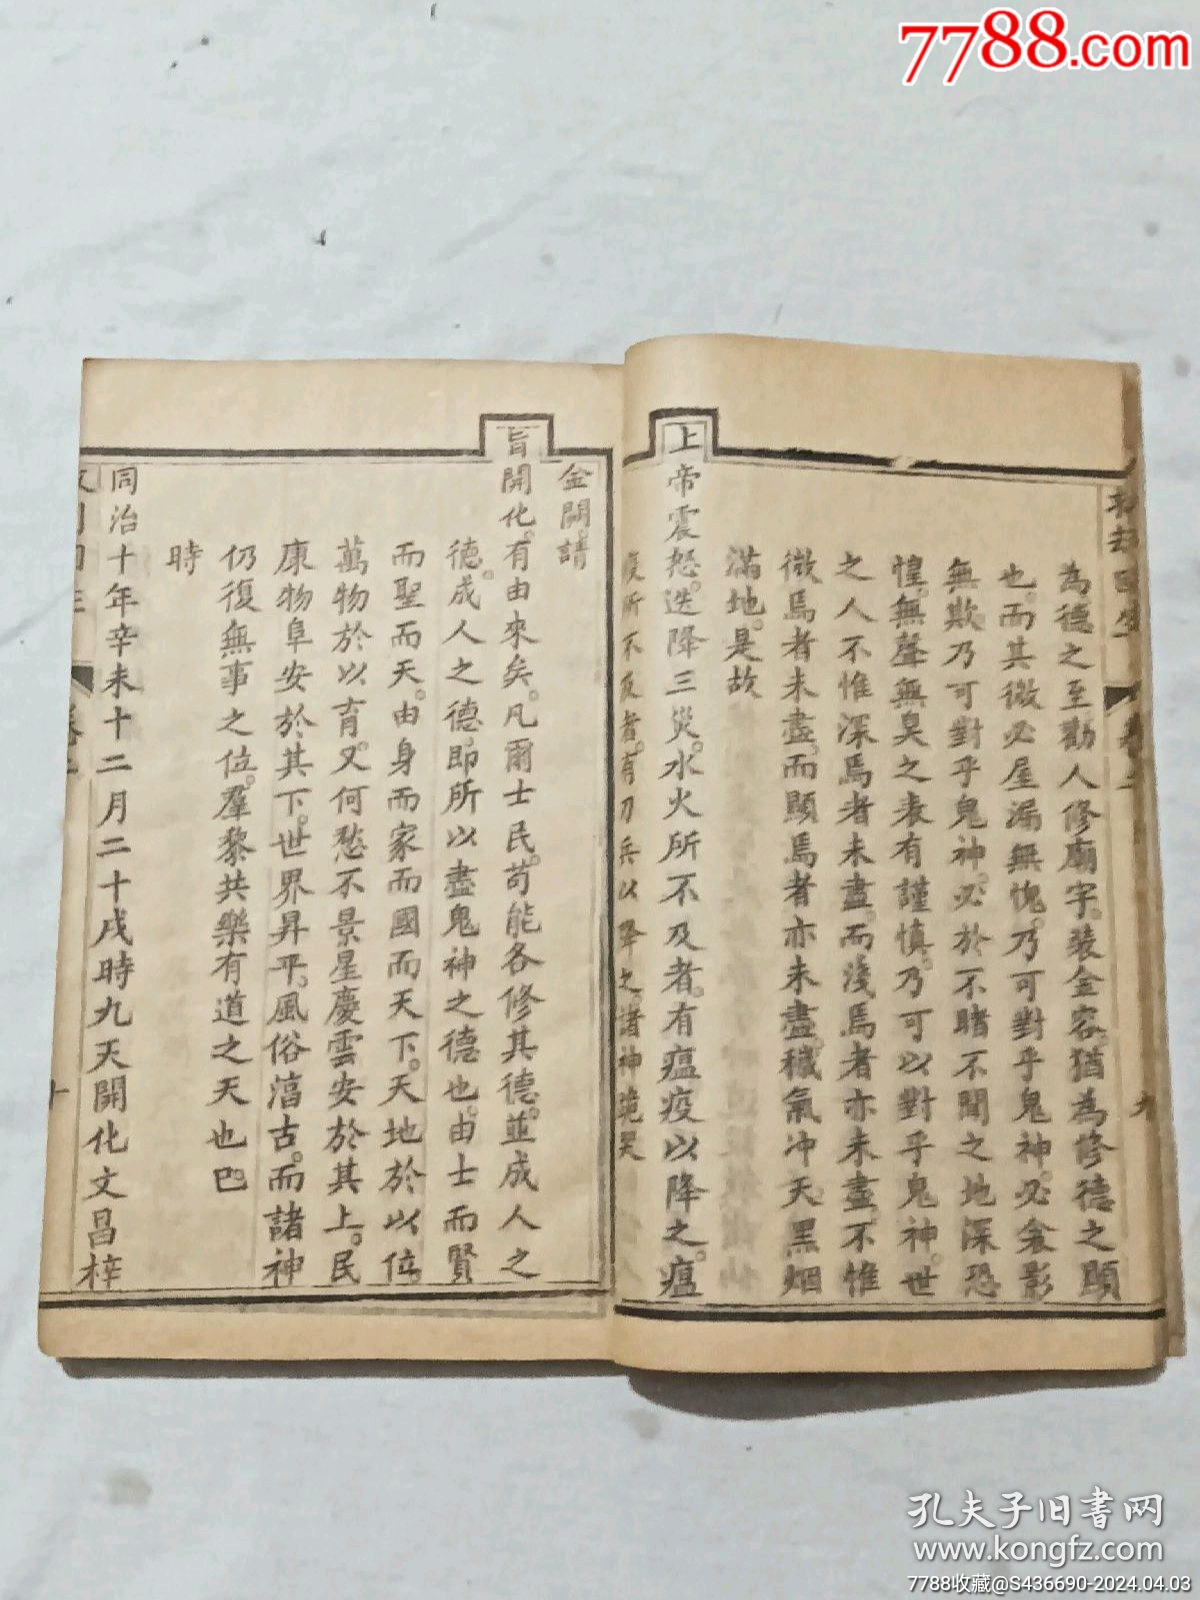 7788.com
為德之至勸人修廟宇。裝金容。猶為修德之顯
也。而其微必屋漏無愧。乃可對乎鬼神。必衾影
無欺。乃可對乎鬼神。必於不睹不聞之地深恐
惶。無聲無臭之表有謹慎。乃可以對乎鬼神。世
之人不惟深焉者未盡。而淺焉者亦未盡。不惟
微焉者未盡。而顯焉者亦未盡。穢氣冲天。黑烟
滿地。是故
上帝震怒。迭降三災。水火所不及者。有瘟疫以降之。瘟
疫所不及者。有刀兵以降之。諸神跪哭
金闕。請
旨開化。有由來矣。凡爾士民。苟能各修其德。並成人之
德。成人之德。即所以盡鬼神之德也。由士而賢
而聖而天。由身而家而國而天下。天地於以位。
萬物於以育。又何愁不景星慶雲安於其上。民
康物阜安於其下。世界昇平。風俗湻古。而諸神
仍復無事之位。羣黎共樂有道之天也巴
時
同治十年辛未十二月二十戌時九天開化文昌梓
孔夫子旧书网
www.kongfz.com
7788收藏@S436690-2024.04.03